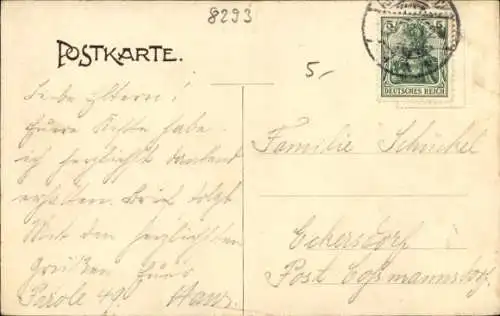 8293
POSTKARTE.
5,-
5 5
DEUTSCHES REICH
Liebe Eltern!
Euere Kiste habe
ich herzlichst dankend
erhalten. Brief folgt
Mit den herzlichsten
Grüßen Euer
Parole 49. Hans.
Familie Schückel
Eckersdorf
Post Coßmannsdorf